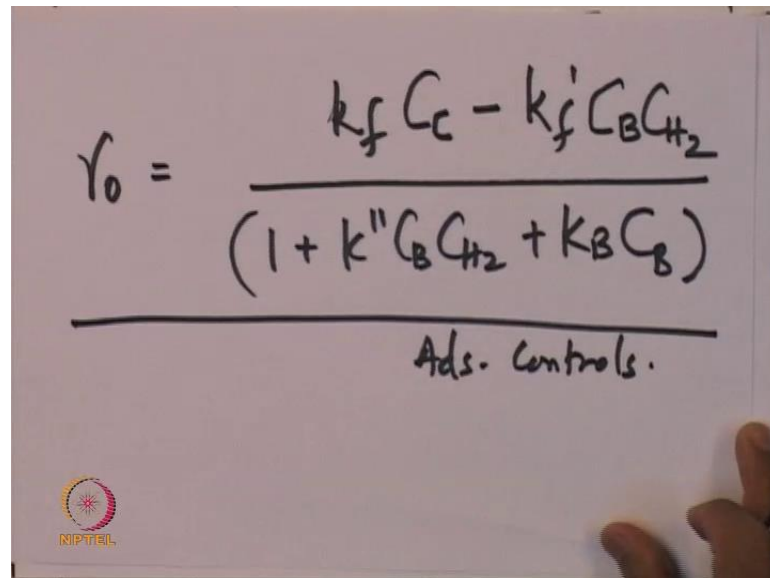 r₀ = k_f C_C - k_f' C_B C_H₂
(1 + k'' C_B C_H₂ + k_B C_B)
Ads. Controls.
NPTEL